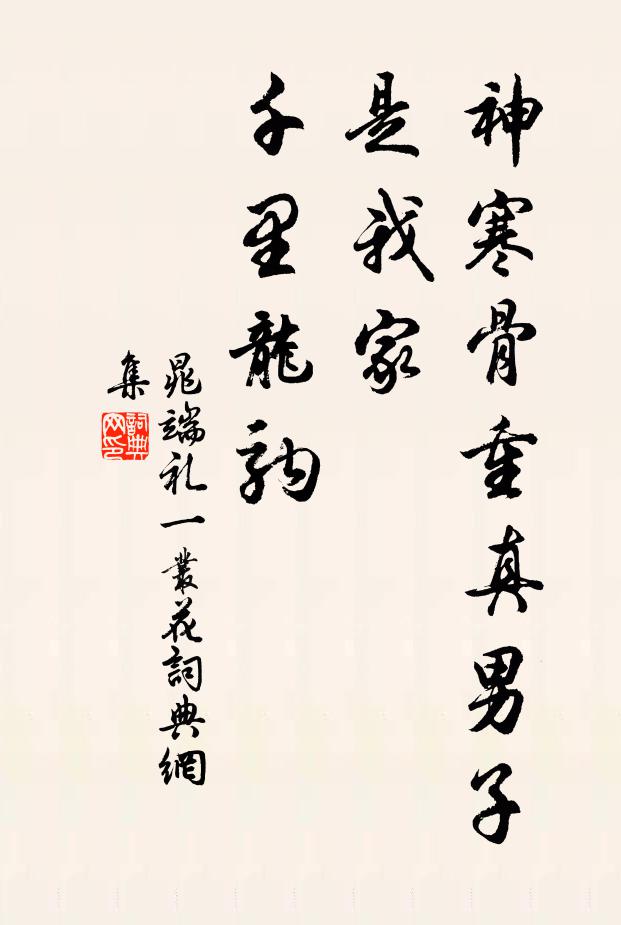 神寒骨重真男子
是我家
千里龍駒
晁端礼一叢花詞典網
集
詞典
网印